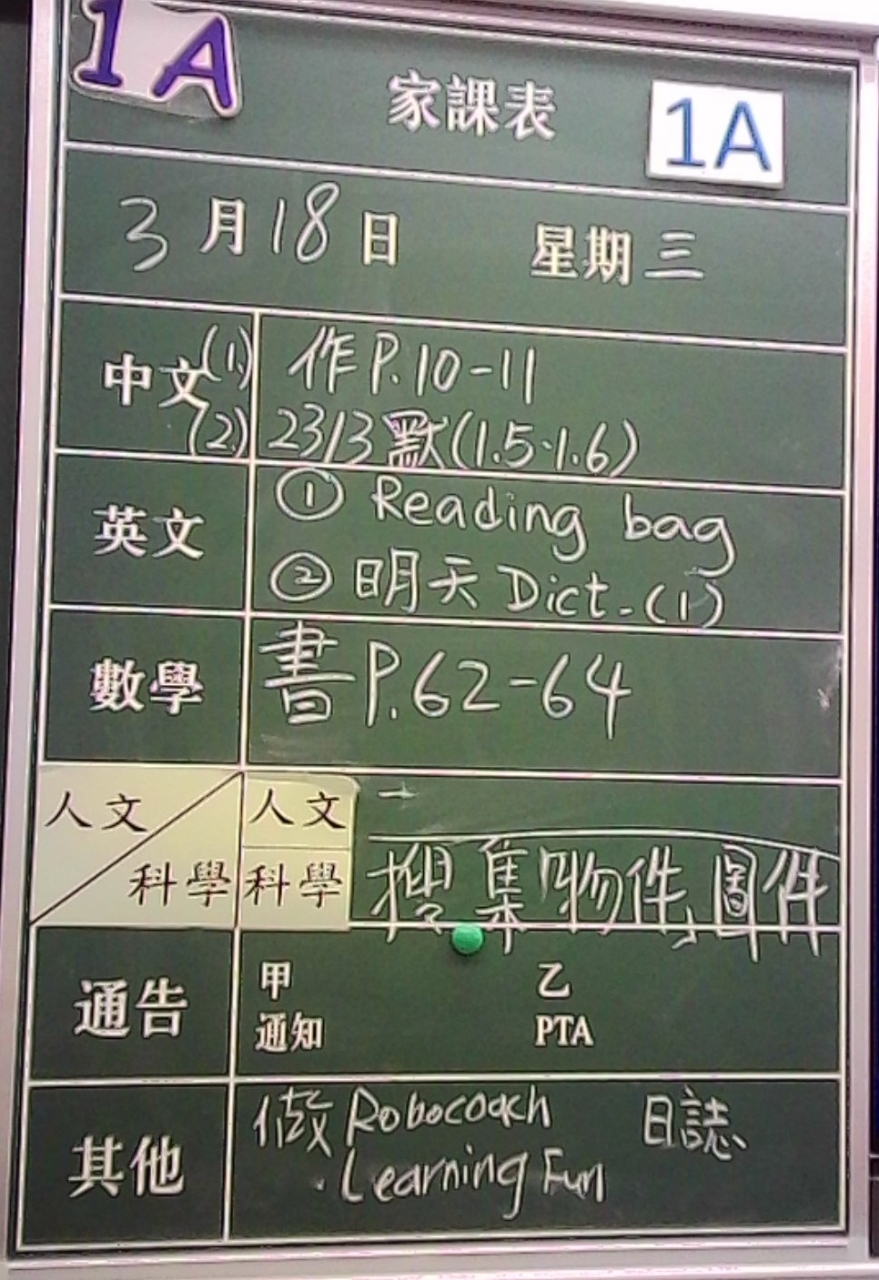 1A
家課表 1A
3月18日 星期三
中文 (1) 作P.10-11
(2) 23/3默(1.5-1.6)
英文 ① Reading bag
② 明天 Dict.(1)
數學 書P.62-64
人文 人文 一
科學 科學 搜集物件,圖件
通告 甲 乙
通知 PTA
其他 做 Robocoach 日誌
Learning Fun